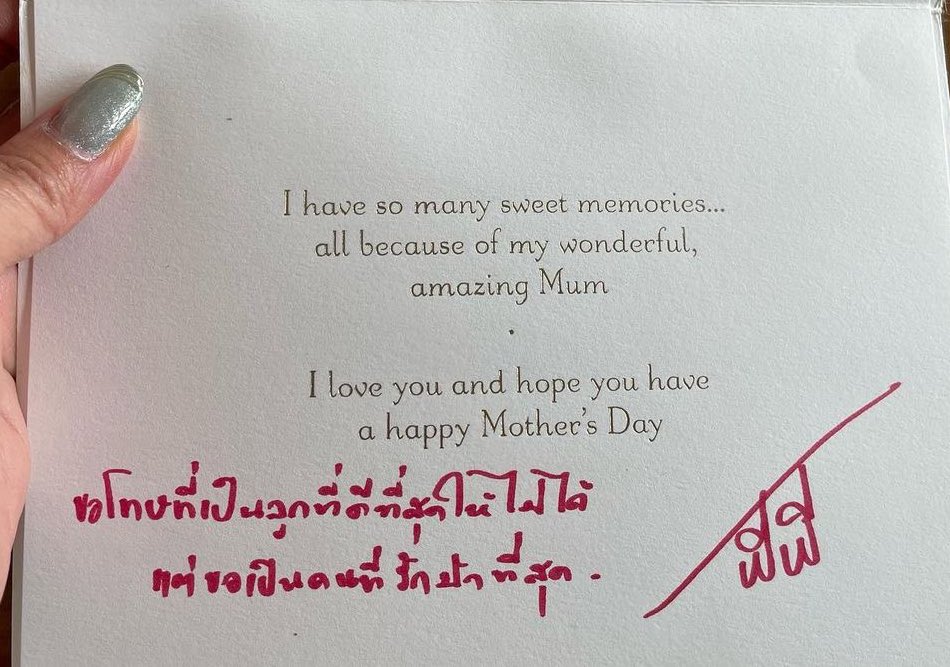 I have so many sweet memories...
all because of my wonderful,
amazing Mum
.
I love you and hope you have
a happy Mother's Day
ขอโทษที่เป็นลูกที่ดีที่สุดให้ไม่ได้
แต่ขอเป็นคนที่รักป๊าที่สุด.
พีพี